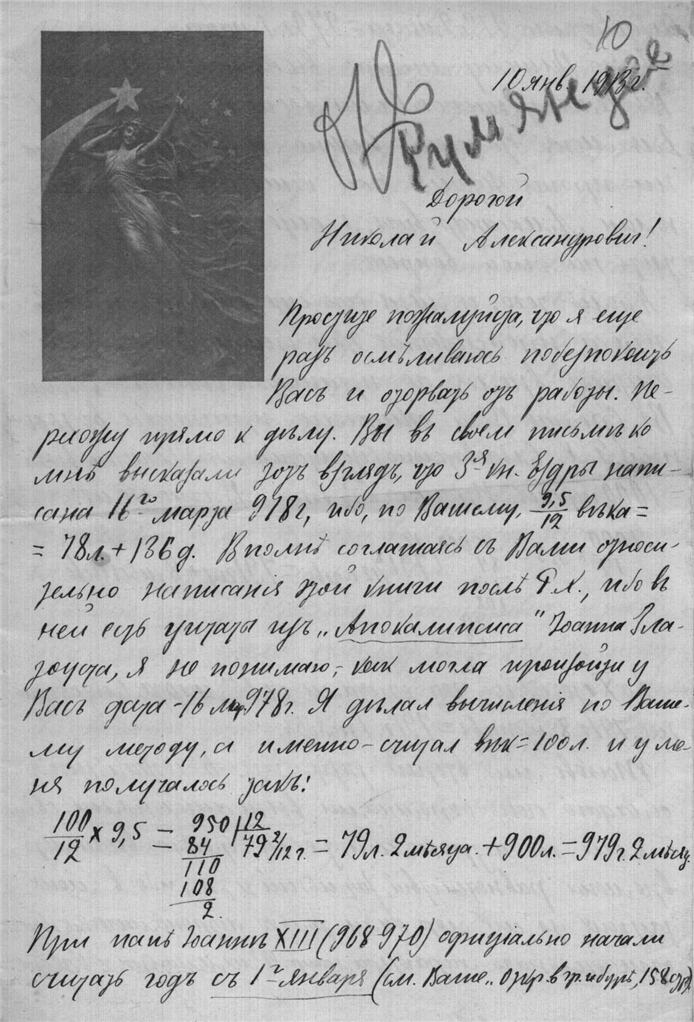 10
10 янв. 1913 г.
Дорогой
Николай Александрович!
Простите пожалуйста, что я еще
разъ осмѣливаюсь побезпокоить
Васъ и оторвать отъ работы. Пе-
рехожу прямо к дѣлу. Вы въ своем письмѣ ко
мнѣ высказали тотъ взглядъ, что 3я кн. Ездры напи-
сана 16го марта 978г, ибо, по Вашему, 9,5/12 вѣка =
= 78л. + 136д. Вполнѣ соглашаясь съ Вами относи-
тельно написанія этой книги послѣ Р.Х., ибо въ
ней есть цитаты изъ „Апокалипсиса" Іоанна Зла-
тоуста, я не понимаю, как могла произойти у
Васъ дата - 16 мар 978г. Я дѣлал вычисленія по Ваше-
му методу, а именно - считал вѣк = 100л. и у ме-
ня получалось такъ:
100/12 × 9,5 = 950 | 12
84 79 2/12 г. = 79л. 2 мѣсяца. + 900л. = 979г. 2 мѣсяц.
110
108
2.
При папѣ Іоаннѣ XIII (968-970) официально начали
считать годъ съ 1го января (см. Ваше „Откр. в гр. и бурѣ", 158 стр).